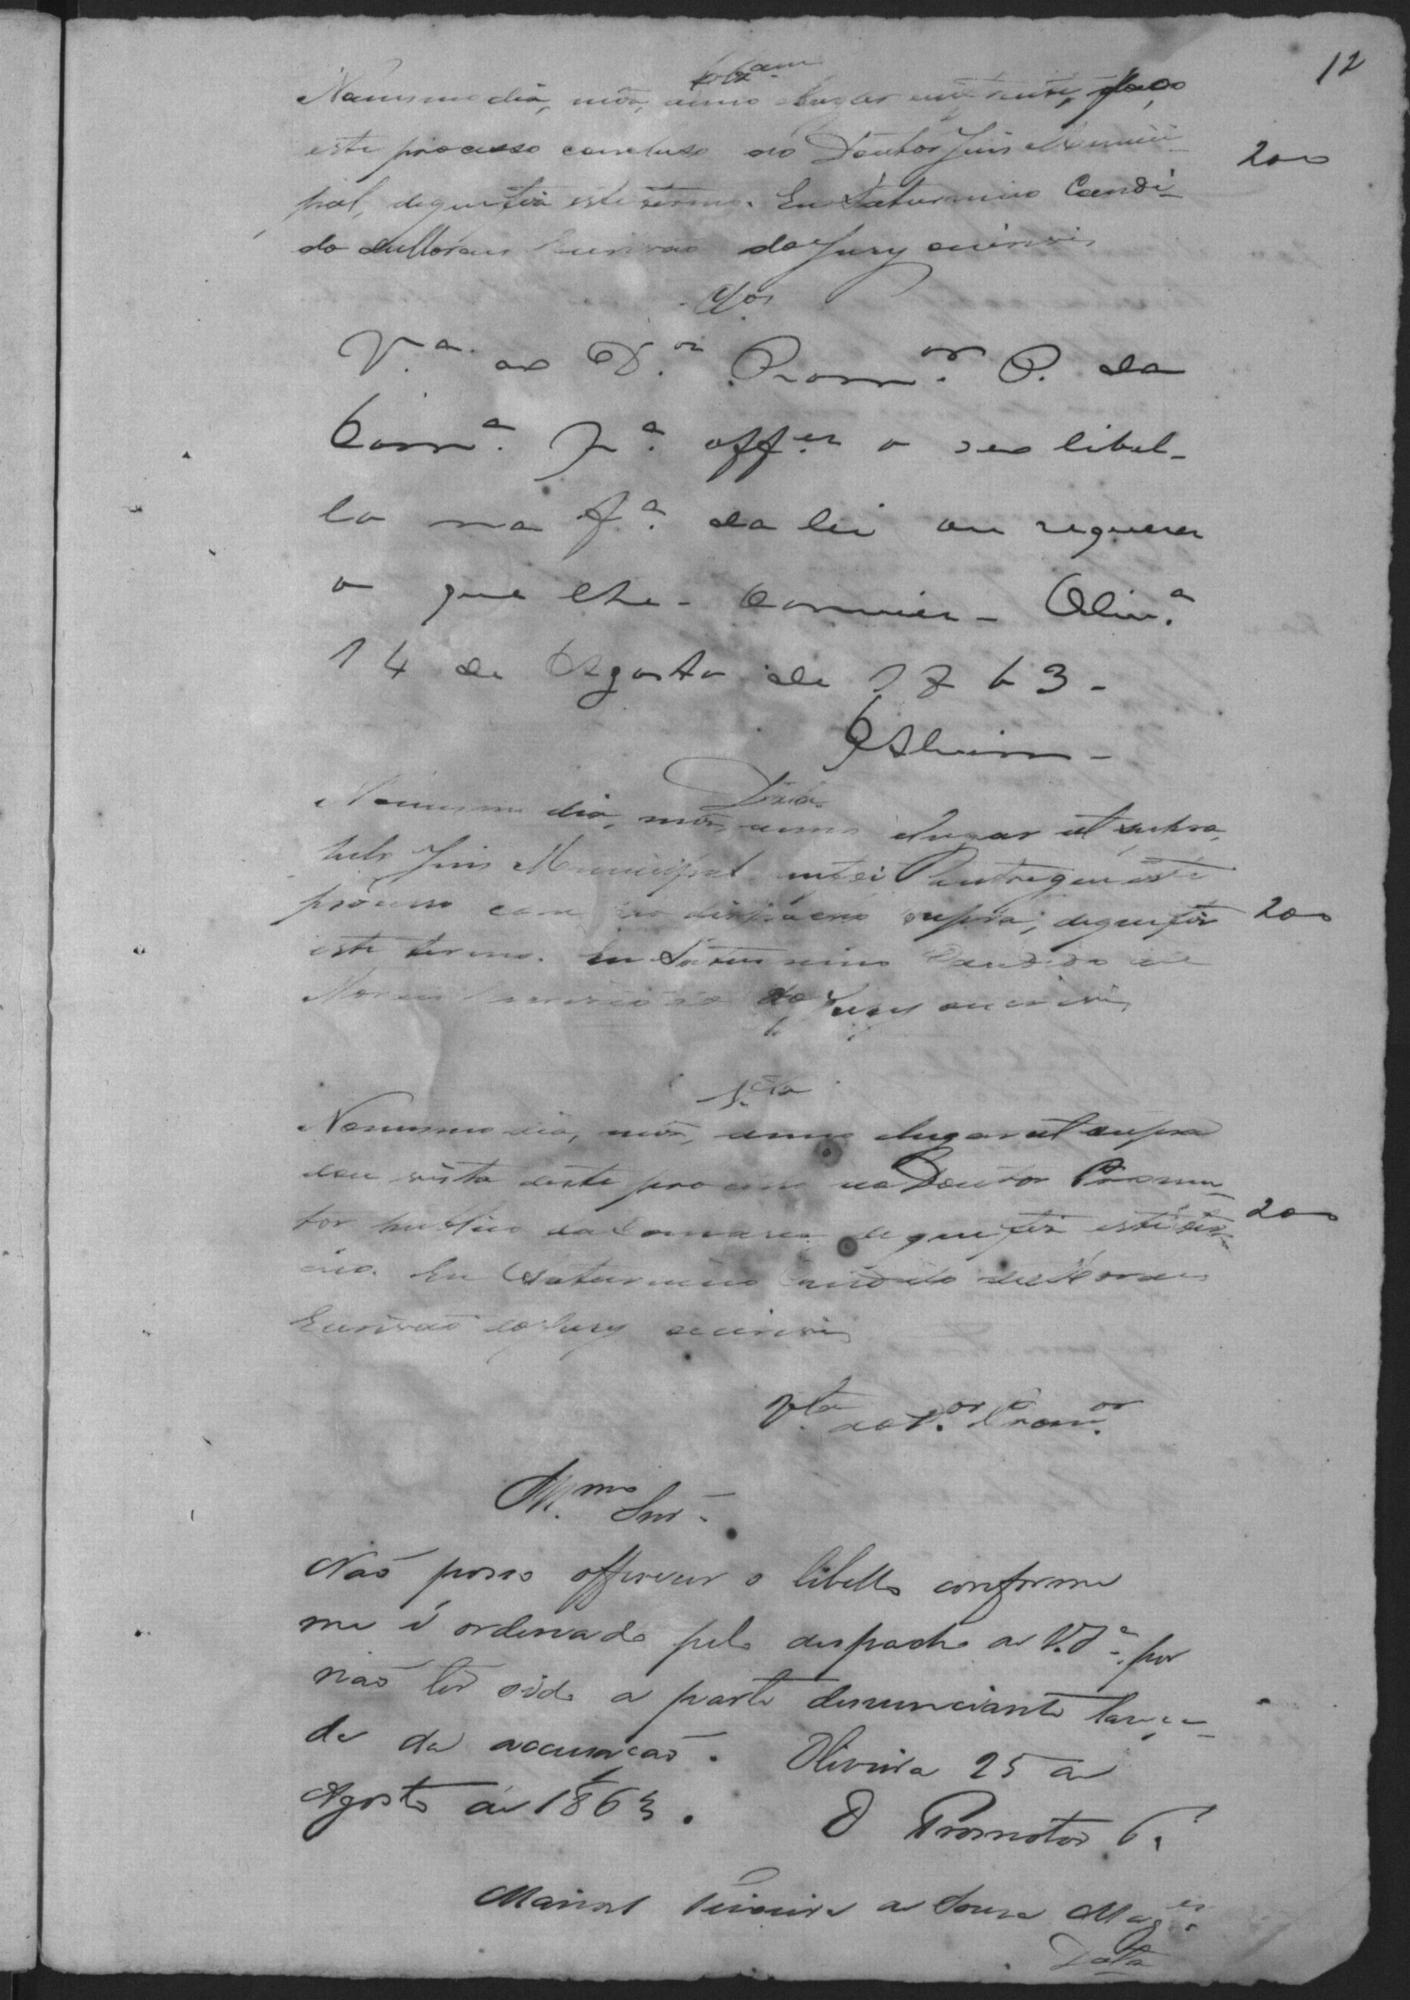 12
No mesmo dia, mes, anno e lugar faço
este processo concluso ao Doutor Juis Munici-
pal, de que fis este termo. Eu Saturnino Candi-
do de Moraes Escrivão do Jury escrevi
200
Clos
V.ª ao D.or Prom.or P. da
Com.ª p.ª off.er o seo libel-
lo na f.ª da lei ou requerer
o que lhe convier - Oliv.ª
14 de Agosto de 1863 -
Alvim -
Data
No mesmo dia, mes, anno e lugar ut supra,
pelo Juis Municipal me foi entregue este
processo com o despacho supra; de que fis
este termo. Eu Saturnino Candido de
Moraes Escrivão do Jury escrevi
200
V.ta
No mesmo dia, mes, anno e lugar ut supra
dou vista deste processo ao Doutor Promo-
tor publico da Comarca, de que fis este ter-
mo. Eu Saturnino Candido de Moraes
Escrivão do Jury escrevi
200
V.ta ao D.or Prom.or
Ill.mo Snr.
Não posso offerecer o libello conforme
me é ordenado pelo despacho de V.S.ª por
não ter sido a parte denunciante lança-
da da accusação. Oliveira 25 de
Agosto de 1863.
O Promotor P.
Manoel Teixeira de Souza Mag.es
Data